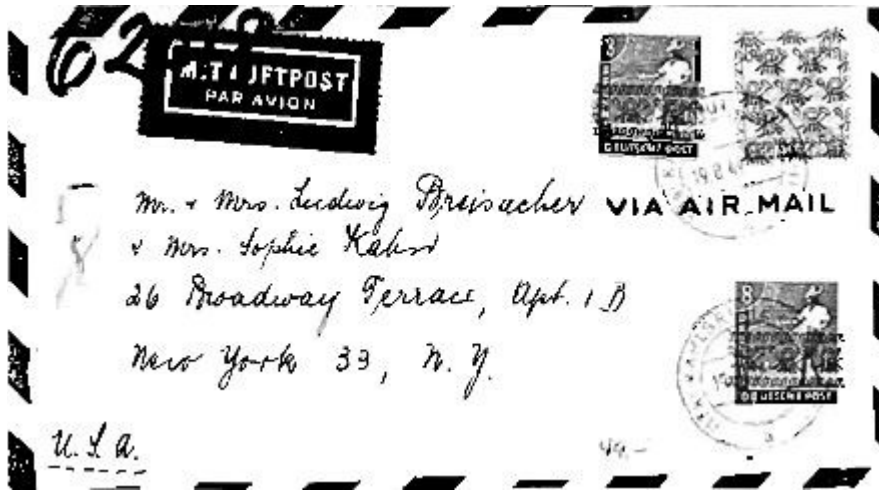 MIT LUFTPOST
PAR AVION
8
DEUTSCHE POST
VIA AIR MAIL
Mr. & Mrs. Ludwig Breisacher
& Mrs. Sophie Kahn
26 Broadway Terrace, Apt. 1 B
New York 33, N. Y.
U. S. A.
8
DEUTSCHE POST